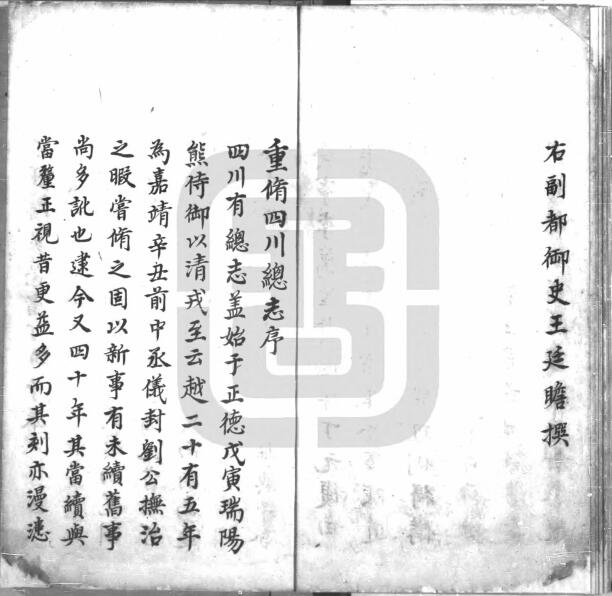 右副都御史王廷瞻撰
重脩四川總志序
四川有總志盖始于正德戊寅瑞陽
熊侍御以清戎至云越二十有五年
為嘉靖辛丑前中丞儀封劉公撫治
之暇嘗脩之固以新事有未續舊事
尚多訛也逮今又四十年其當續與
當釐正視昔更益多而其刻亦漫漶